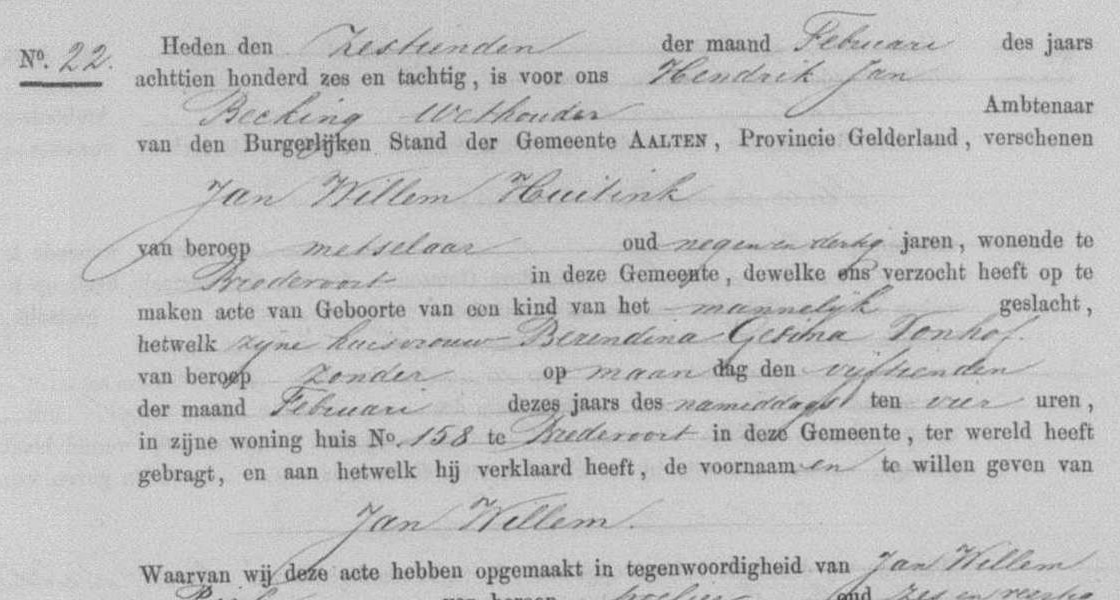 Nº. 22. Heden den zestienden der maand Februari des jaars
achttien honderd zes en tachtig, is voor ons Hendrik Jan
Becking Wethouder Ambtenaar
van den Burgerlijken Stand der Gemeente AALTEN, Provincie Gelderland, verschenen
Jan Willem Huitink
van beroep metselaar oud negen en dertig jaren, wonende te
Bredevoort in deze Gemeente, dewelke ons verzocht heeft op te
maken acte van Geboorte van een kind van het mannelijk geslacht,
hetwelk zijne huisvrouw Berendina Gesina Tonhof
van beroep zonder op maandag den vijftienden
der maand Februari dezes jaars des nameddags ten vier uren,
in zijne woning huis No. 158 te Bredevoort in deze Gemeente, ter wereld heeft
gebragt, en aan hetwelk hij verklaard heeft, de voornaamen te willen geven van
Jan Willem.
Waarvan wij deze acte hebben opgemaakt in tegenwoordigheid van Jan Willem
van beroep oud zes en